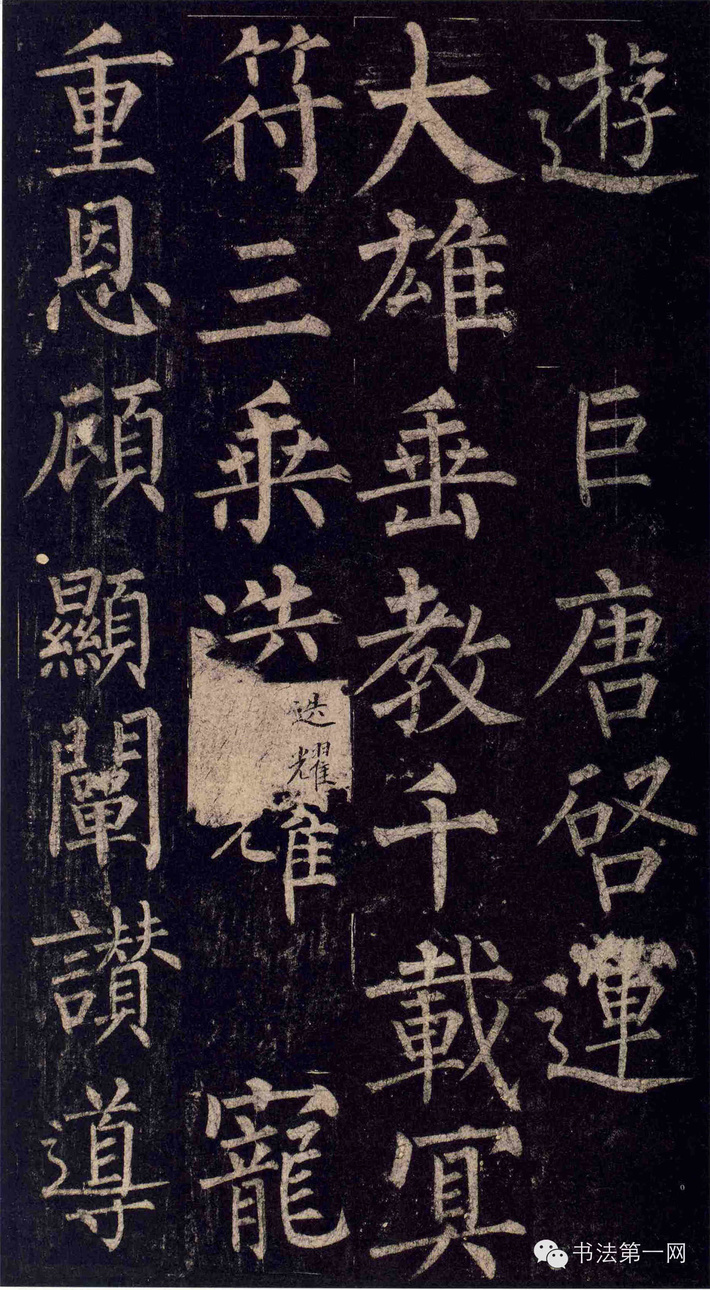 遊 巨唐啓運
大雄垂教千載冥
符三乘迭耀 寵
迭耀
重恩顧顯闡讚導
书法第一网